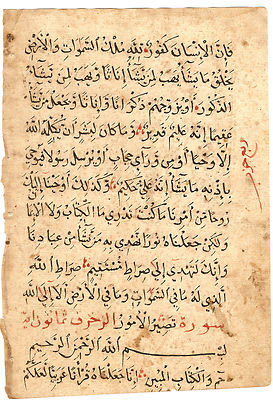 فَإِنَّ الْإِنْسَانَ كَفُورٌ لِلَّهِ مُلْكُ السَّمٰوَاتِ وَالْأَرْضِ
يَخْلُقُ مَا يَشَاءُ يَهَبُ لِمَنْ يَشَاءُ إِنَاثًا وَيَهَبُ لِمَنْ يَشَاءُ
الذُّكُورَ أَوْ يُزَوِّجُهُمْ ذُكْرَانًا وَإِنَاثًا وَيَجْعَلُ مَنْ يَشَاءُ
عَقِيمًا إِنَّهُ عَلِيمٌ قَدِيرٌ وَمَا كَانَ لِبَشَرٍ أَنْ يُكَلِّمَهُ اللَّهُ
إِلَّا وَحْيًا أَوْ مِنْ وَرَايِ حِجَابٍ أَوْ يُرْسِلَ رَسُولًا فَيُوحِيَ
بِإِذْنِهِ مَا يَشَاءُ إِنَّهُ عَلِيٌّ حَكِيمٌ وَكَذٰلِكَ أَوْحَيْنَا إِلَيْكَ
رُوحًا مِنْ أَمْرِنَا مَا كُنْتَ تَدْرِي مَا الْكِتَابُ وَلَا الْإِيمَانُ
وَلٰكِنْ جَعَلْنَاهُ نُورًا نَهْدِي بِهِ مَنْ نَشَاءُ مِنْ عِبَادِنَا
وَإِنَّكَ لَتَهْدِي إِلَى صِرَاطٍ مُسْتَقِيمٍ صِرَاطِ اللَّهِ
الَّذِي لَهُ مَا فِي السَّمٰوَاتِ وَمَا فِي الْأَرْضِ أَلَا إِلَى اللَّهِ
سورة تَصِيرُ الْأُمُورُ الزخرف ثمانون آية
بِسْمِ اللَّهِ الرَّحْمٰنِ الرَّحِيمِ
حم وَالْكِتَابِ الْمُبِينِ إِنَّا جَعَلْنَاهُ قُرْآنًا عَرَبِيًّا لَعَلَّكُمْ
ربع حزب